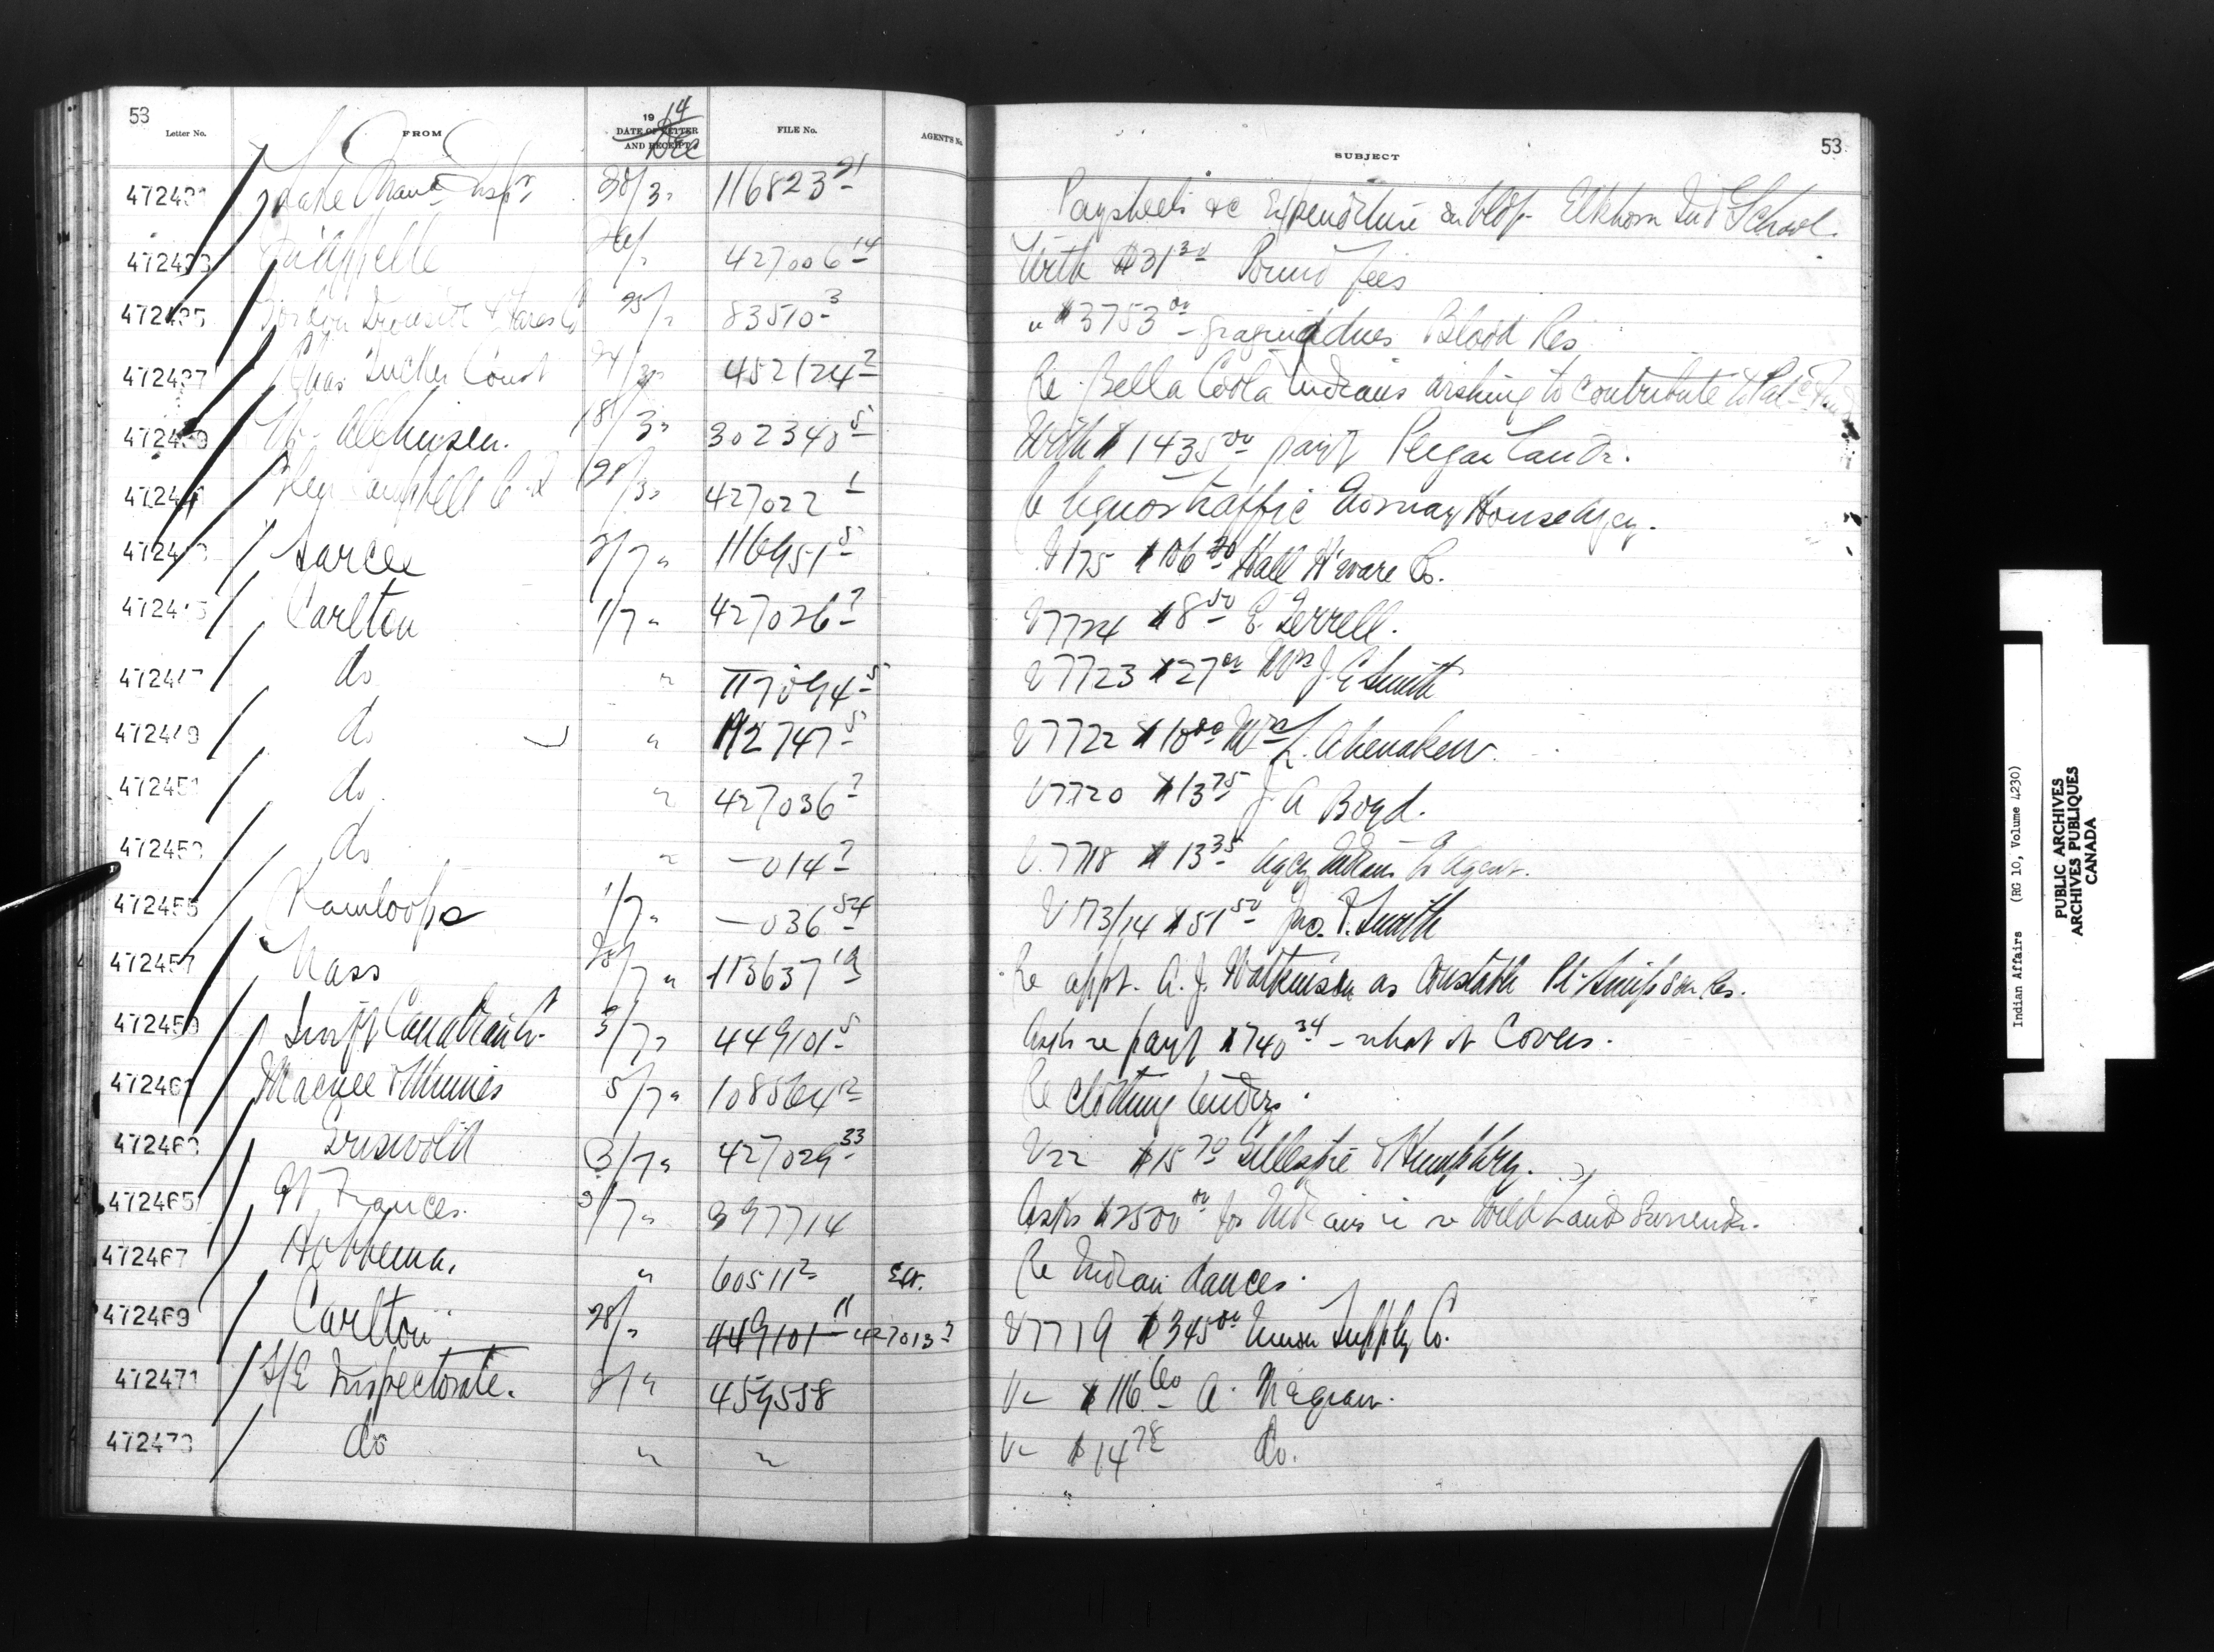 53
Letter No. FROM 1914 DATE OF LETTER AND RECEIPT Dec FILE No. AGENT'S No. SUBJECT 53
472431 30/3 " 116823 21 Paysheets &c Expenditure on bldg. Elkhorn Ind School.
472433 Qu'Appelle 427006 14 With $31 30 Pound fees
472435 25/ " 83510 3 " $3753 00 grazing dues Blood Res
472437 Chas Tucker Const 24/30 452124 2 Re Bella Coola Indians wishing to contribute to Pat. Fund
472439 18/3 " 302340 5 With $1435 00 payt Peigan Lands.
Campbell 427022 1 Re liquor traffic Norway House Agcy.
Sarcee 2/7 " 116951 5 V175 $106 20 Hall H'ware Co.
Carlton 1/7 " 427026 2 V7724 $8 50 E. Terrell.
472447 do " 117094 5 V7723 $27 00 Mrs J. E Smith
472449 do " 112747 5 V7722 $10 00 Mrs L. Ahenakew.
472451 do " 427036 2 V7720 $13 75 J. A Boyd.
472453 do " —014 2 V.7718 $13 35 Agcy Indians Agent.
472455 Kamloops 1/7 " —036 54 V173/14 $51 50 Jno. T. Smith
472457 Nass 28/7 " 113637 19 Re appt. A. J. Watkinson as Constable Pt. Simpson Res.
472459 Swift Canadian Co. 3/7 " 449101 5 Asks re payt $740 34 — what it Covers.
472461 Macnee & Minnes 5/7 " 108564 2 Re Clothing tenders.
472463 Griswold 3/7 " 427029 33 V22 $15 70 Gillespie & Humphry.
472465 Ft. Frances. 3/7 " 397714 Asks $2500 00 for Indians in re Wild Land Surrender.
472467 Hobbema. " 60511 2 Re Indian dances.
472469 Carlton 28/ " 449101 11 427013 2 V7719 $345 00 Union Supply Co.
472471 S/E Inspectorate. 459558 V— $116 60 A.
472473 do " " V— $14 78 do.
Indian Affairs (RG 10, Volume 4230)
PUBLIC ARCHIVES
ARCHIVES PUBLIQUES
CANADA